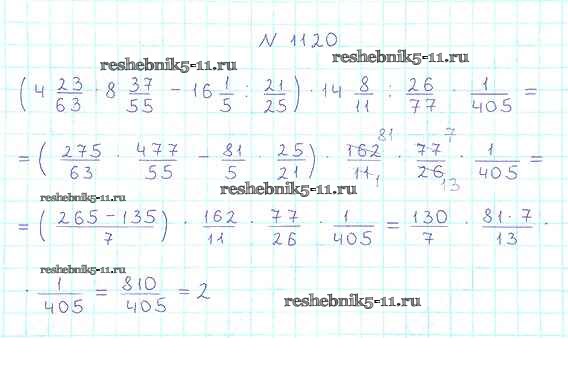 N 1120
reshebnik5-11.ru reshebnik5-11.ru
(4 23/63 · 8 37/55 − 16 1/5 : 21/25) · 14 8/11 : 26/77 · 1/405 =
= (275/63 · 477/55 − 81/5 · 25/21) · 162/11 · 77/26 · 1/405 =
81 7 1 13
reshebnik5-11.ru reshebnik5-11.ru
= (265 − 135/7) · 162/11 · 77/26 · 1/405 = 130/7 · 81 · 7/13 ·
reshebnik5-11.ru
· 1/405 = 810/405 = 2
reshebnik5-11.ru